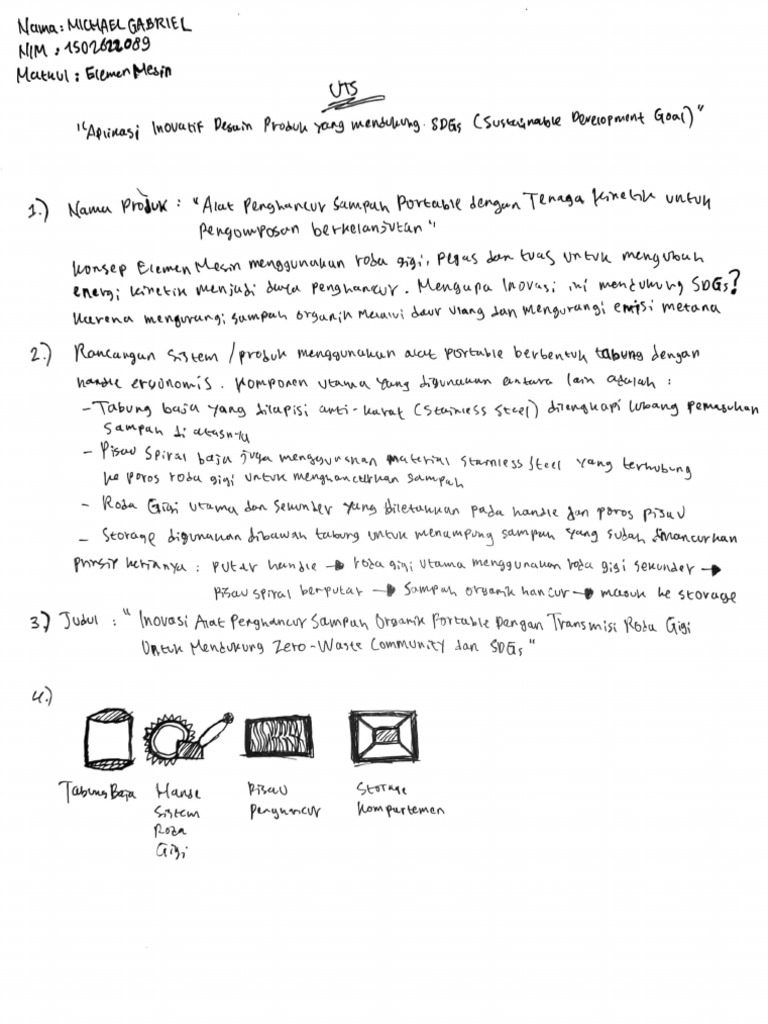 Nama: MICHAEL GABRIEL
NIM : 1502622089
Matkul : Elemen Mesin
UTS
"Aplikasi Inovatif Desain Produk yang mendukung SDGs (Sustainable Development Goal)"
1.) Nama Produk : "Alat Penghancur Sampah Portable dengan Tenaga Kinetik untuk
Pengomposan berkelanjutan"
Konsep Elemen Mesin menggunakan roda gigi, pegas dan tuas untuk mengubah
energi kinetik menjadi daya penghancur. Mengapa Inovasi ini mendukung SDGs?
Karena mengurangi sampah organik melalui daur ulang dan mengurangi emisi metana
2.) Rancangan sistem / produk menggunakan alat portable berbentuk tabung dengan
handle ergonomis. Komponen utama yang digunakan antara lain adalah :
- Tabung baja yang dilapisi anti-karat (Stainless Steel) dilengkapi lubang pemasukan
sampah di atasnya
- Pisau spiral baja juga menggunakan material Stainless Steel yang terhubung
ke poros roda gigi untuk menghancurkan sampah
- Roda Gigi utama dan sekunder yang diletakkan pada handle dan poros pisau
- Storage digunakan dibawah tabung untuk menampung sampah yang sudah dihancurkan
prinsip kerjanya : putar handle → roda gigi utama menggunakan roda gigi sekunder →
pisau spiral berputar → sampah organik hancur → masuk ke storage
3.) Judul : "Inovasi Alat Penghancur Sampah Organik Portable Dengan Transmisi Roda Gigi
Untuk Mendukung Zero-Waste Community dan SDGs"
4.)
Tabung Baja
Handle
Sistem
Roda
Gigi
Pisau
Penghancur
Storage
Kompartemen